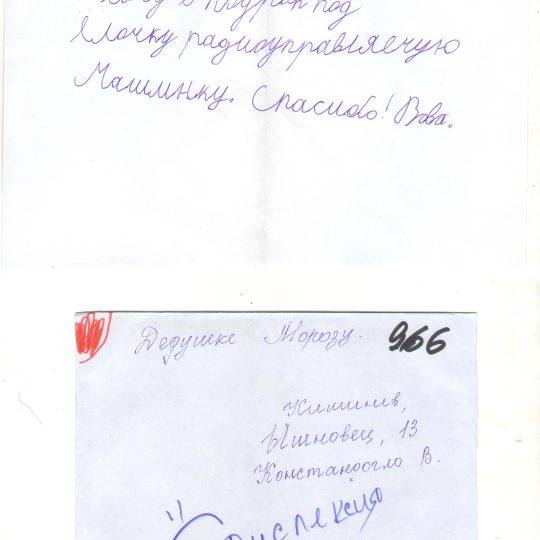 Хочу в подарок под
ёлочку радиоуправляемую
Машинку. Спасибо! Вова.
Дедушке Морозу. 966
Кишинев,
Ышновец, 13
Констаноогло В.